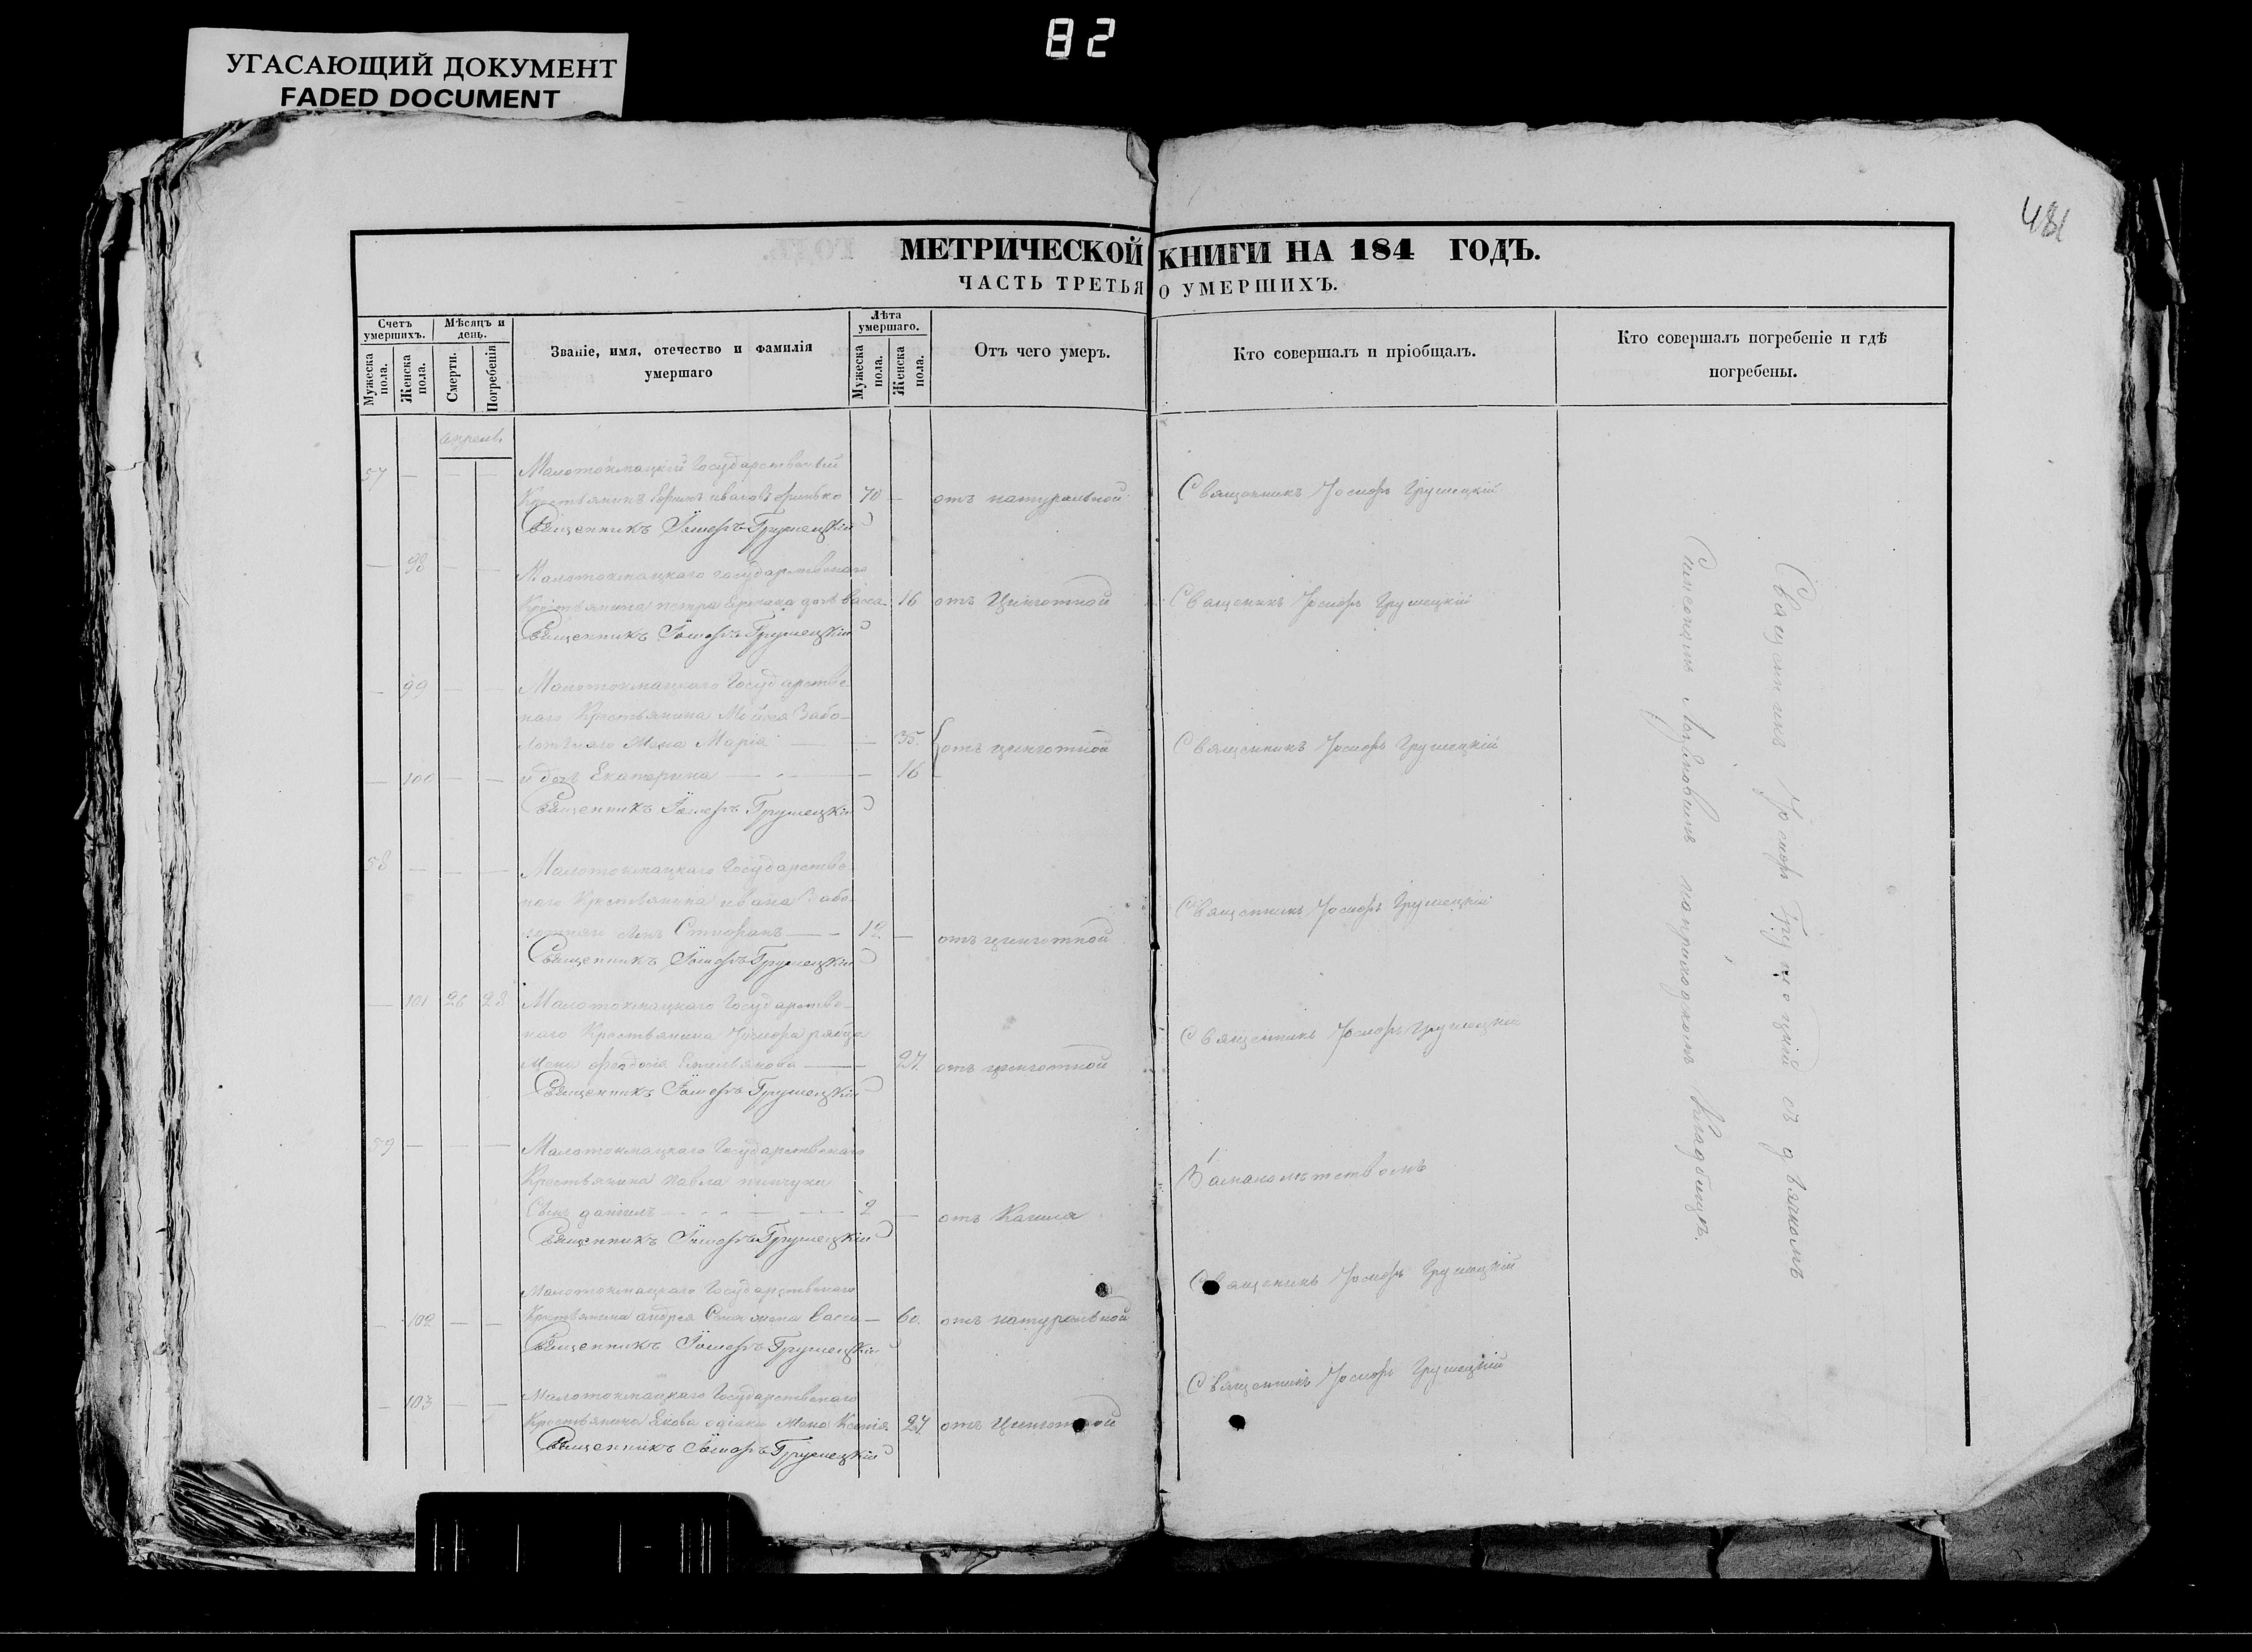 82
УГАСАЮЩИЙ ДОКУМЕНТ
FADED DOCUMENT
481
МЕТРИЧЕСКОЙ КНИГИ НА 184 ГОДЪ.
ЧАСТЬ ТРЕТЬЯ О УМЕРШИХЪ.
Счетъ умершихъ.
Мужеска пола.
Женска пола.
Мѣсяцъ и день.
Смерти.
Погребенія
Званіе, имя, отечество и фамилія умершаго
Лѣта умершаго.
Мужеска пола.
Женска пола.
Отъ чего умеръ.
Кто совершалъ и пріобщалъ.
Кто совершалъ погребеніе и гдѣ погребены.
57 — — — Малотокмацкій Государственый
Крестьянинъ 70 — отъ натуральной Священникъ Іосифъ Грушецкій
Священникъ Іосифъ Грушецкій
— 98 — — Малотокмацкаго государственаго
Крестьянина петра дочь васса 16 отъ Цинготной Священикъ Іосифъ Грушецкій
Священникъ Іосифъ Грушецкій
— 99 — — Малотокмацкаго Государстве
наго Крестьянина Мойсея Забо-
лотняго Жена Марія — 35. отъ цинготной Священникъ Іосифъ Грушецкій
— 100 — — и дочь Екатерина — 16
Священникъ Іосифъ Грушецкій
58 — — — Малотокмацкаго Государстве
наго Крестьянина ивана Забо-
лотняго сынъ Стефанъ 12 — отъ цинготной Священникъ Іосифъ Грушецкій
Священникъ Іосифъ Грушецкій
— 101 26 28 Малотокмацкаго Государстве-
наго Крестьянина Іосифа
Жена феодосія Емельянова — 27. отъ цинготной Священникъ Іосифъ Грушецкій
Священникъ Іосифъ Грушецкій
59 — — — Малотокмацкаго Государственаго
Крестьянина павла
Сынъ даніилъ 2 — отъ Кашля
Священникъ Іосифъ Грушецкій
Малотокмацкаго Государственаго
— 102 — — Крестьянина андрея жена васса — 60. отъ натуральной Священикъ Іосифъ Грушецкій
Священникъ Іосифъ Грушецкій
— 103 — — Малотокмацкаго Государственаго
Крестьянина Якова Жена Ксенія 27 отъ Цинготной Священникъ Іосифъ Грушецкій
Священникъ Іосифъ Грушецкій
Священникъ Іосифъ Грушецкій съ дьячкомъ
на приходскомъ Кладбищѣ.